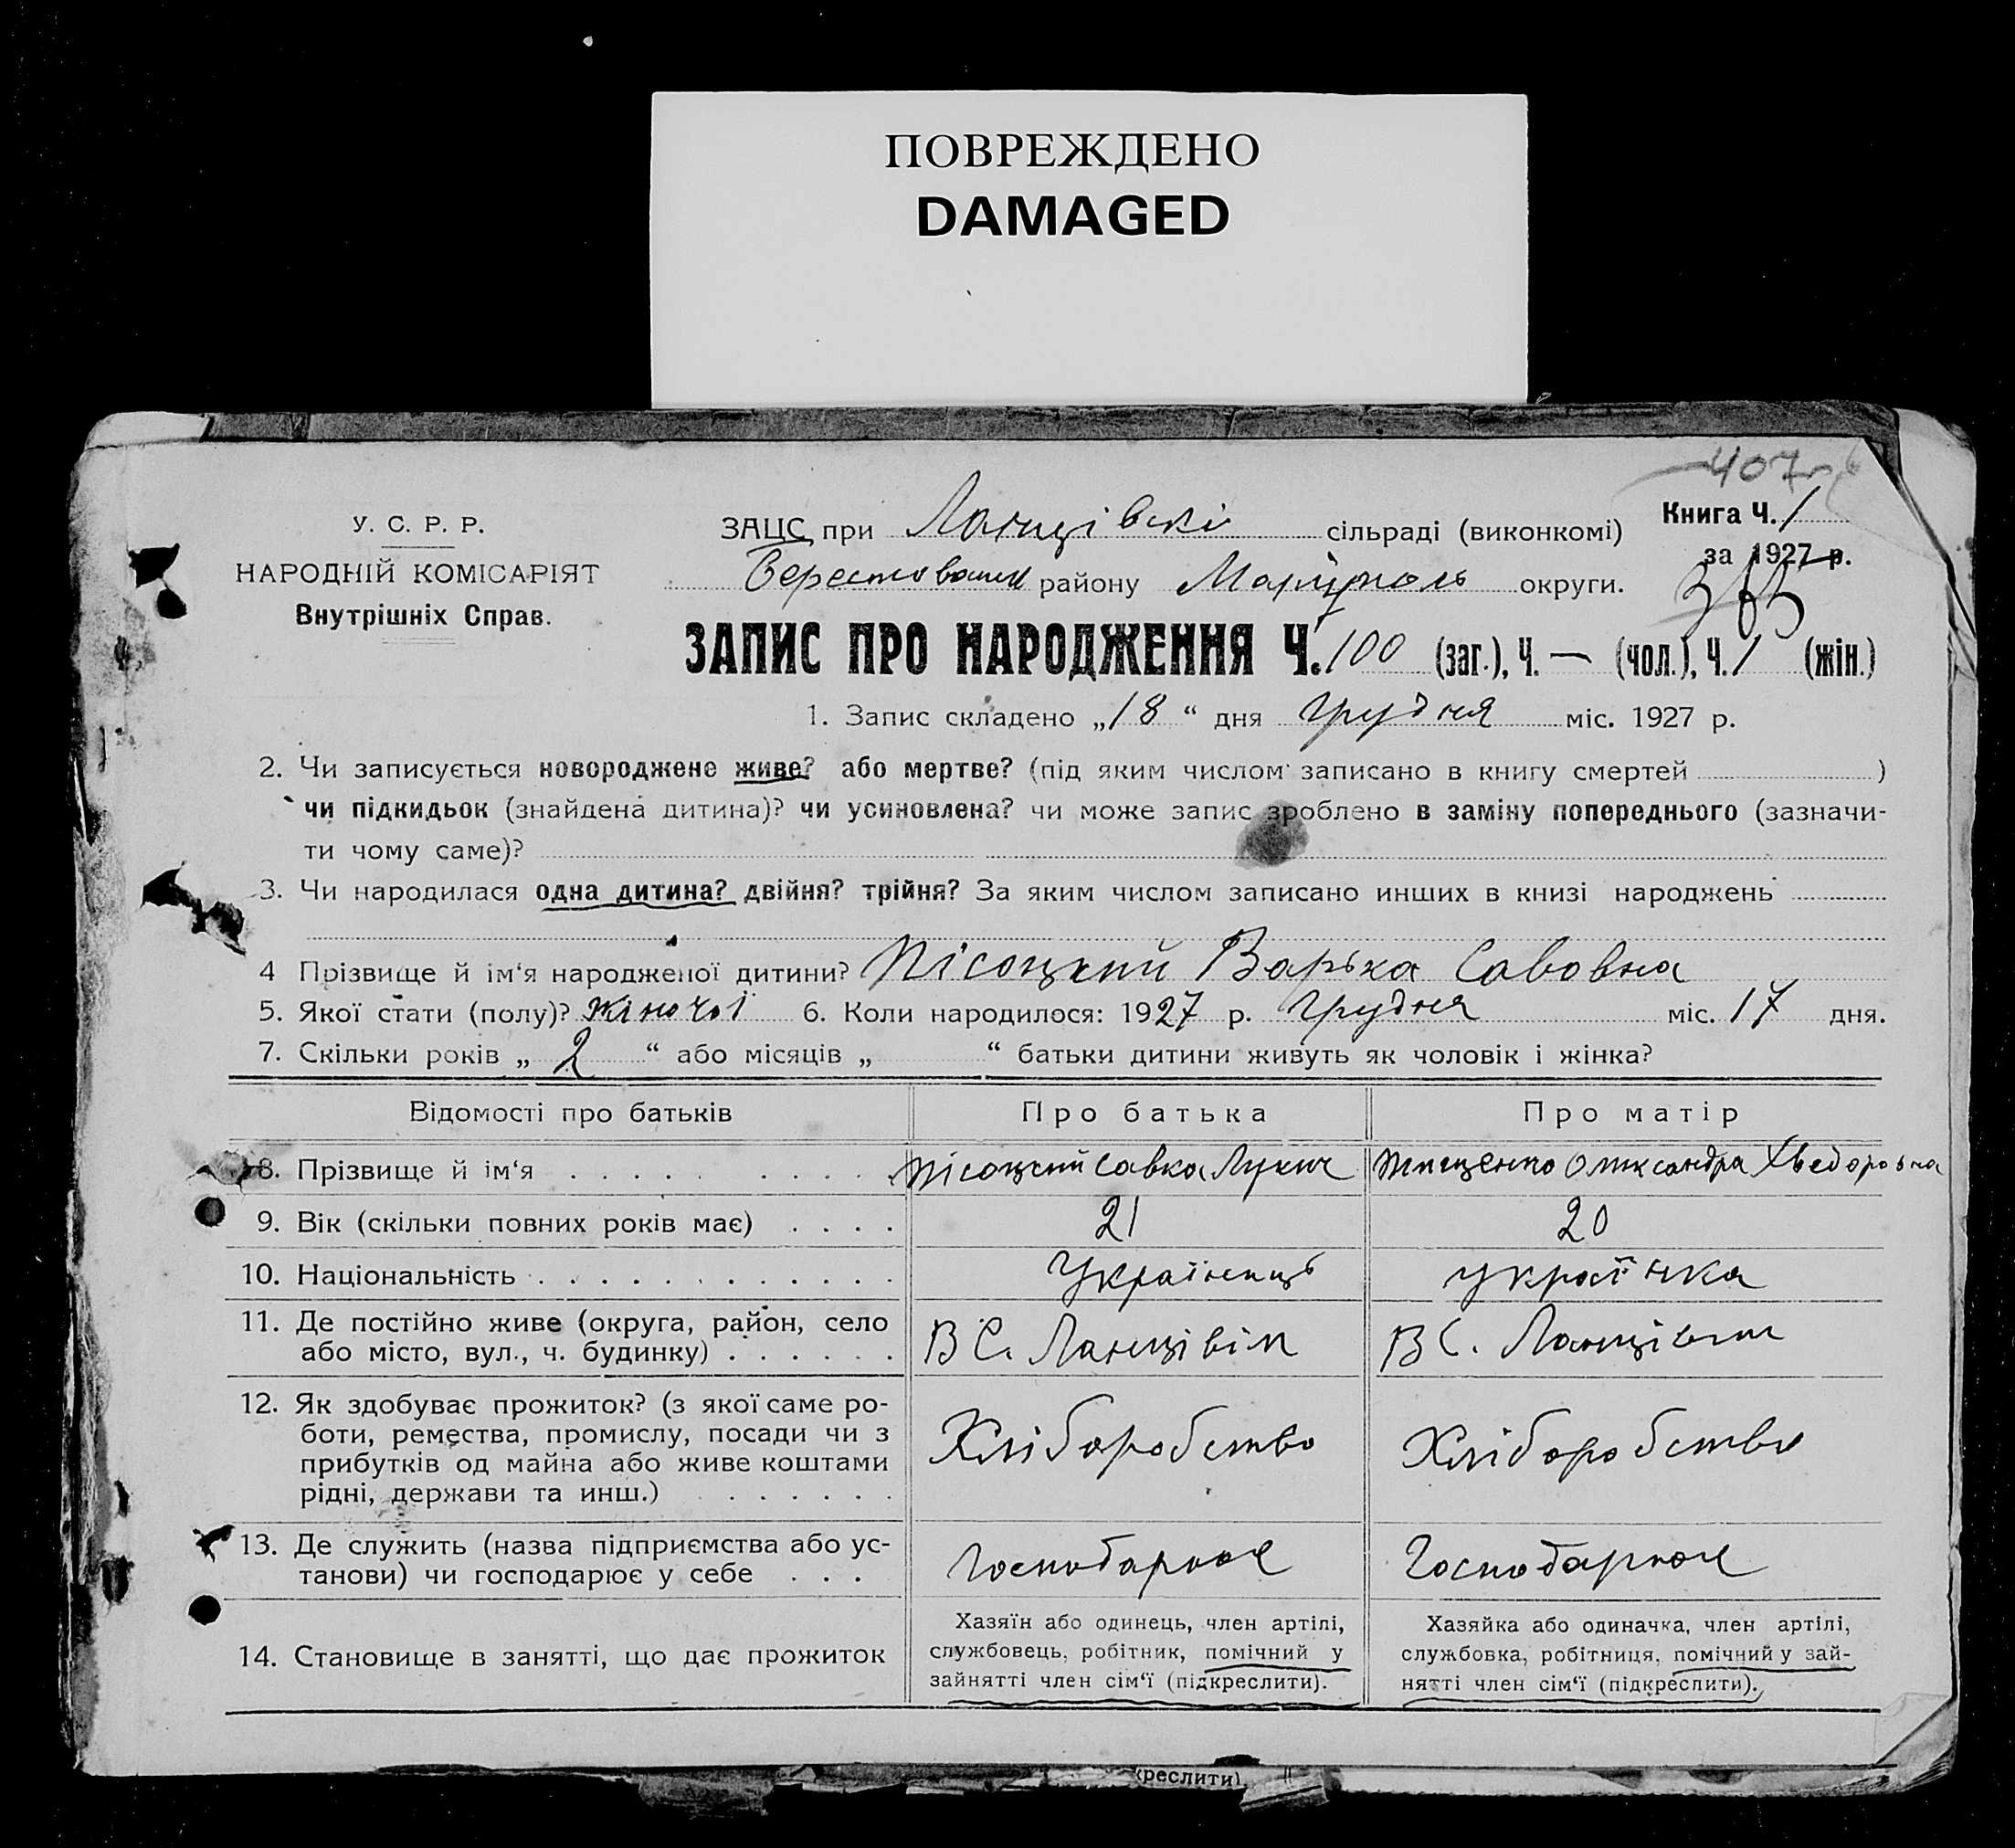 ПОВРЕЖДЕНО
DAMAGED
407
У. С. Р. Р.
НАРОДНІЙ КОМІСАРІЯТ
Внутрішніх Справ.
ЗАЦС при Ланцівскі сільраді (виконкомі)
Книга Ч. 1
за 1927 р.
району Маріуполь округи.
ЗАПИС ПРО НАРОДЖЕННЯ Ч. 100 (заг.), Ч. — (чол.), Ч. 1 (жін.)
1. Запис складено „18“ дня Грудня міс. 1927 р.
2. Чи записується новороджене живе? або мертве? (під яким числом записано в книгу смертей )
чи підкидьок (знайдена дитина)? чи усиновлена? чи може запис зроблено в заміну попереднього (зазначи-
ти чому саме)?
3. Чи народилася одна дитина? двійня? трійня? За яким числом записано инших в книзі народжень
4 Прізвище й ім‘я народженої дитини? Пісоцкий Варька Савовна
5. Якої стати (полу)? жіночої 6. Коли народилося: 1927 р. Грудня міс. 17 дня.
7. Скільки років „ 2 “ або місяців „ “ батьки дитини живуть як чоловік і жінка?
Відомості про батьків Про батька Про матір
8. Прізвище й ім‘я Пісоцкий Савка Лукич Олександра Хведоровна
9. Вік (скільки повних років має) 21 20
10. Національність Українець українка
11. Де постійно живе (округа, район, село
або місто, вул., ч. будинку) В С. Ланцівім В С. Ланцівим
12. Як здобуває прожиток? (з якої саме ро-
боти, ремества, промислу, посади чи з
прибутків од майна або живе коштами
рідні, держави та инш.) Хліборобство Хліборобство
13. Де служить (назва підприємства або ус-
танови) чи господарює у себе Господарює Господарює
14. Становище в занятті, що дає прожиток
Хазяїн або одинець, член артілі,
службовець, робітник, помічний у
зайнятті член сім‘ї (підкреслити).
Хазяйка або одиначка, член артілі,
службовка, робітниця, помічний у зай-
нятті член сім‘ї (підкреслити).
креслити)